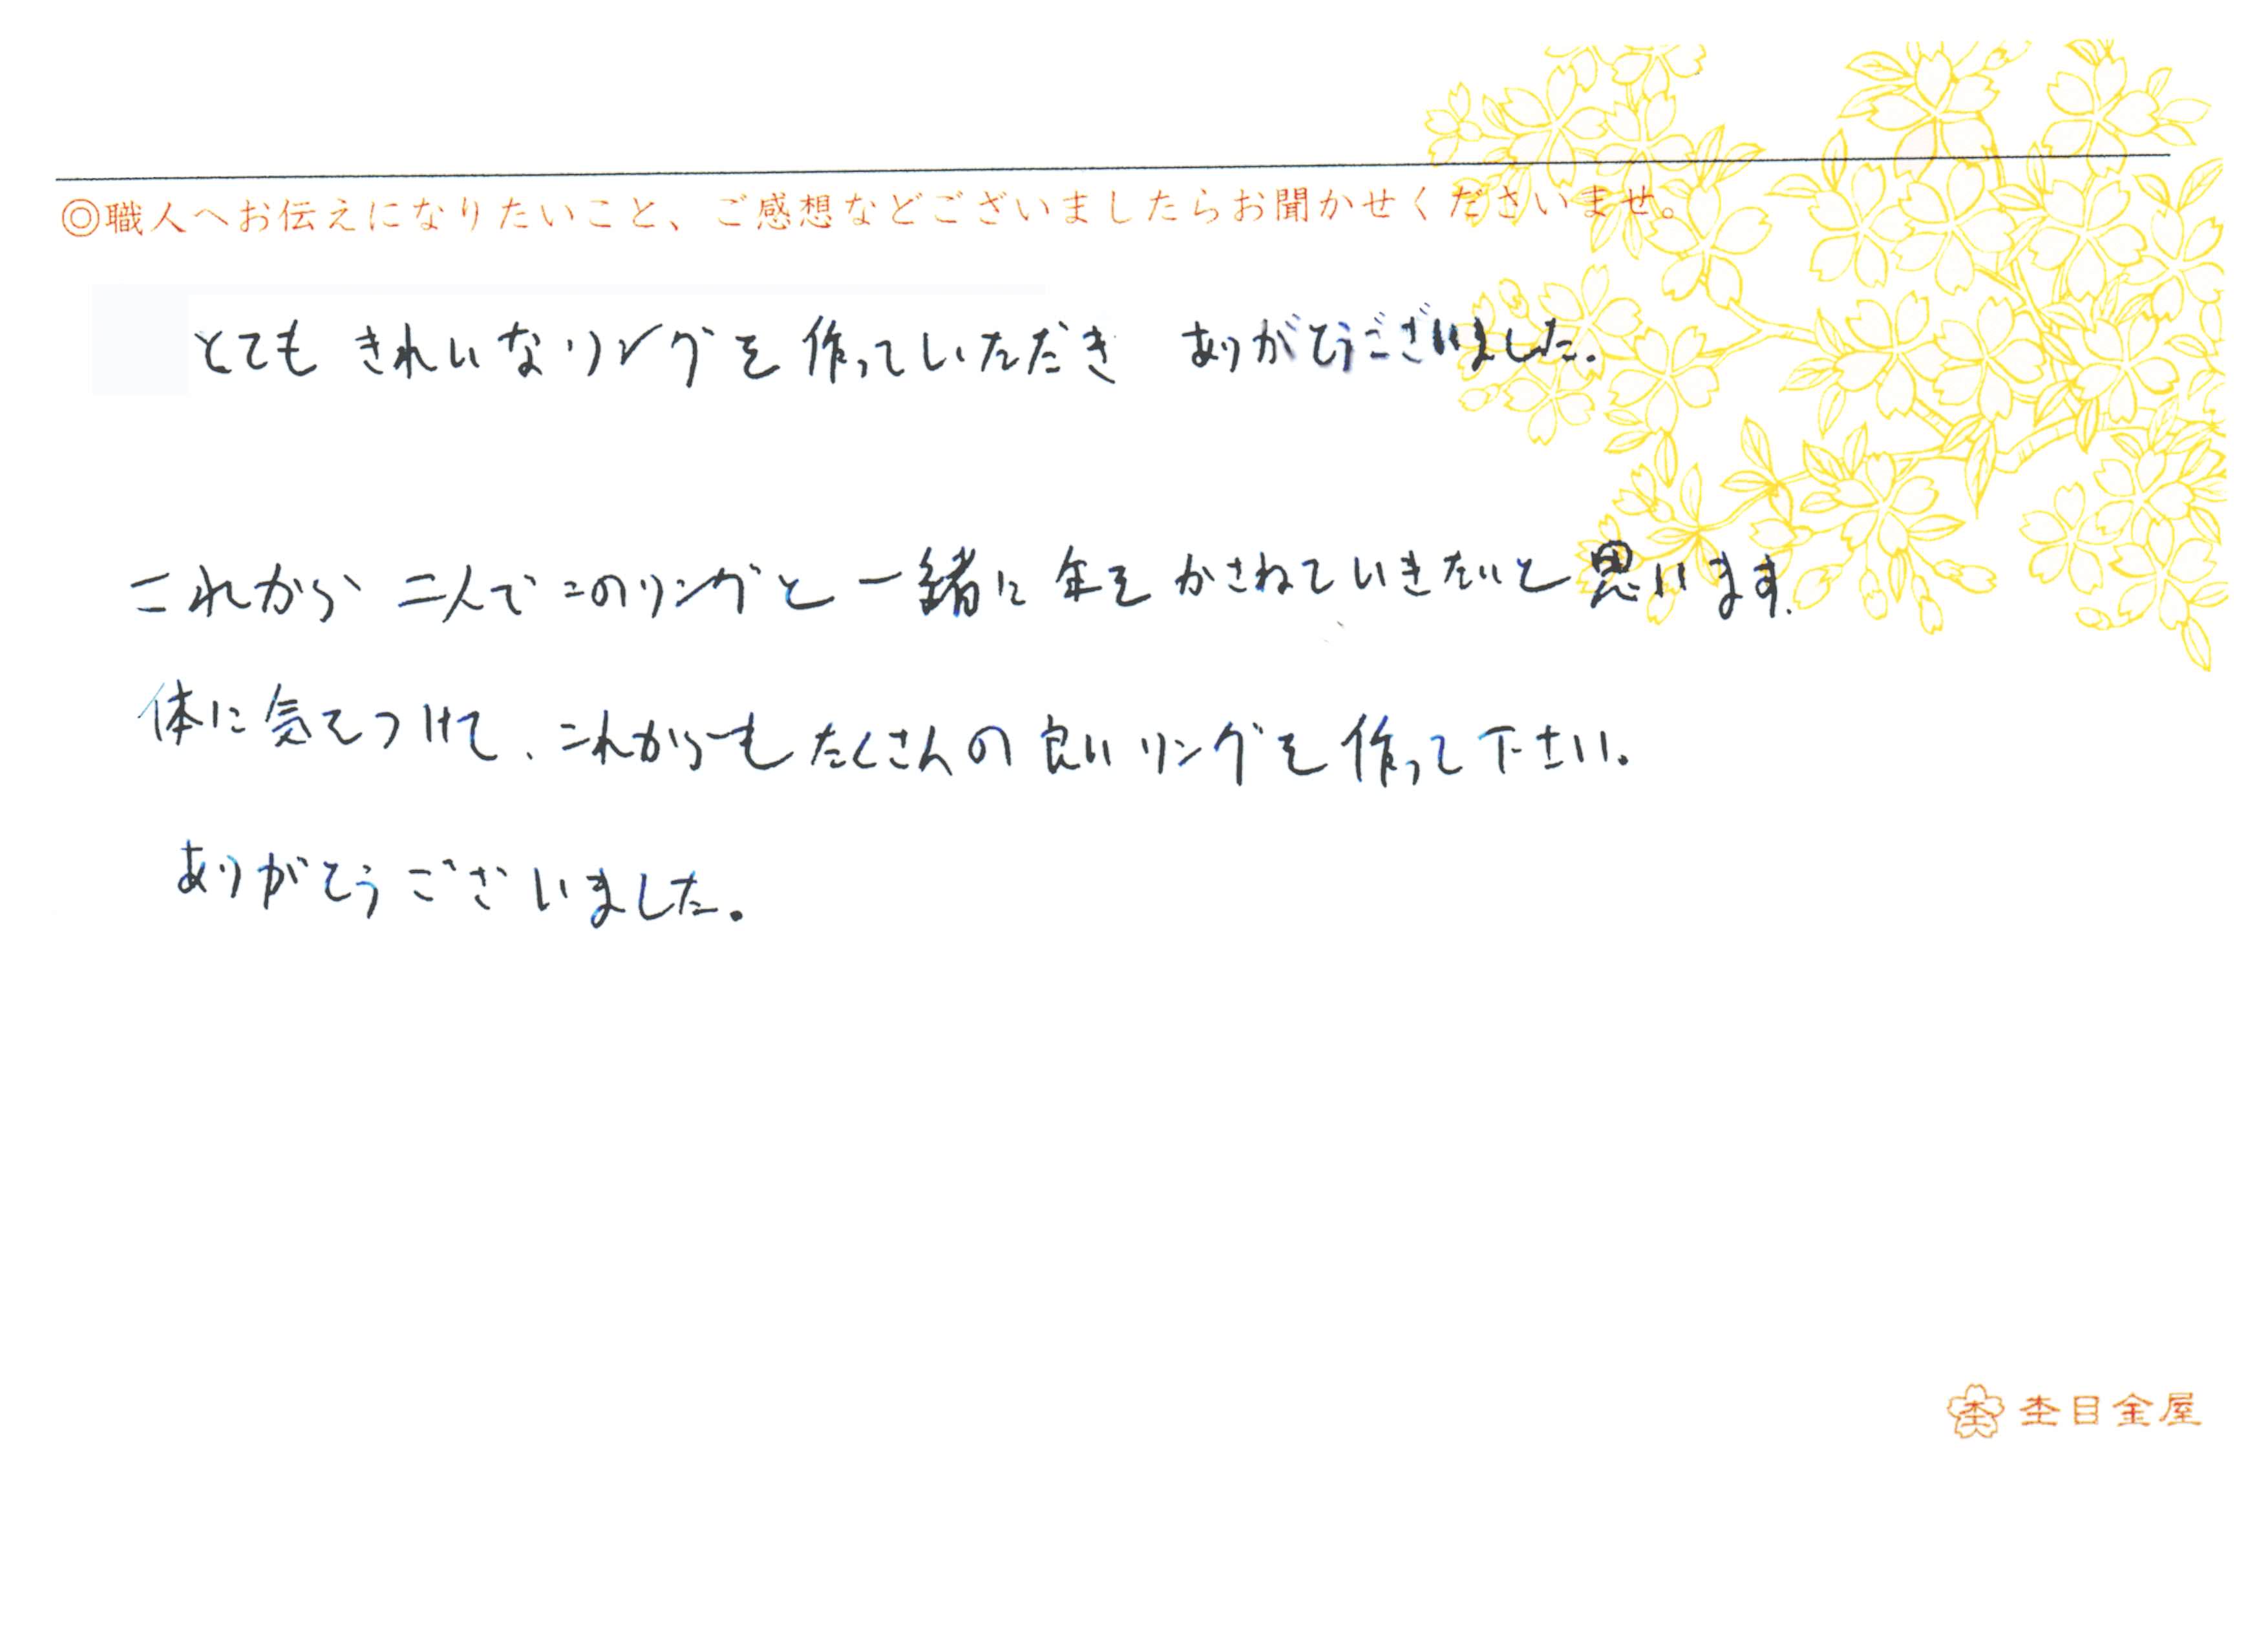 ◎職人へお伝えになりたいこと、ご感想などございましたらお聞かせくださいませ。
とても きれいなリングを 作っていただき ありがとうございました。
これから 二人で このリングと 一緒に 年を かさねていきたいと 思います。
体に気をつけて、これからも たくさんの 良いリングを 作って 下さい。
ありがとうございました。
杢目金屋